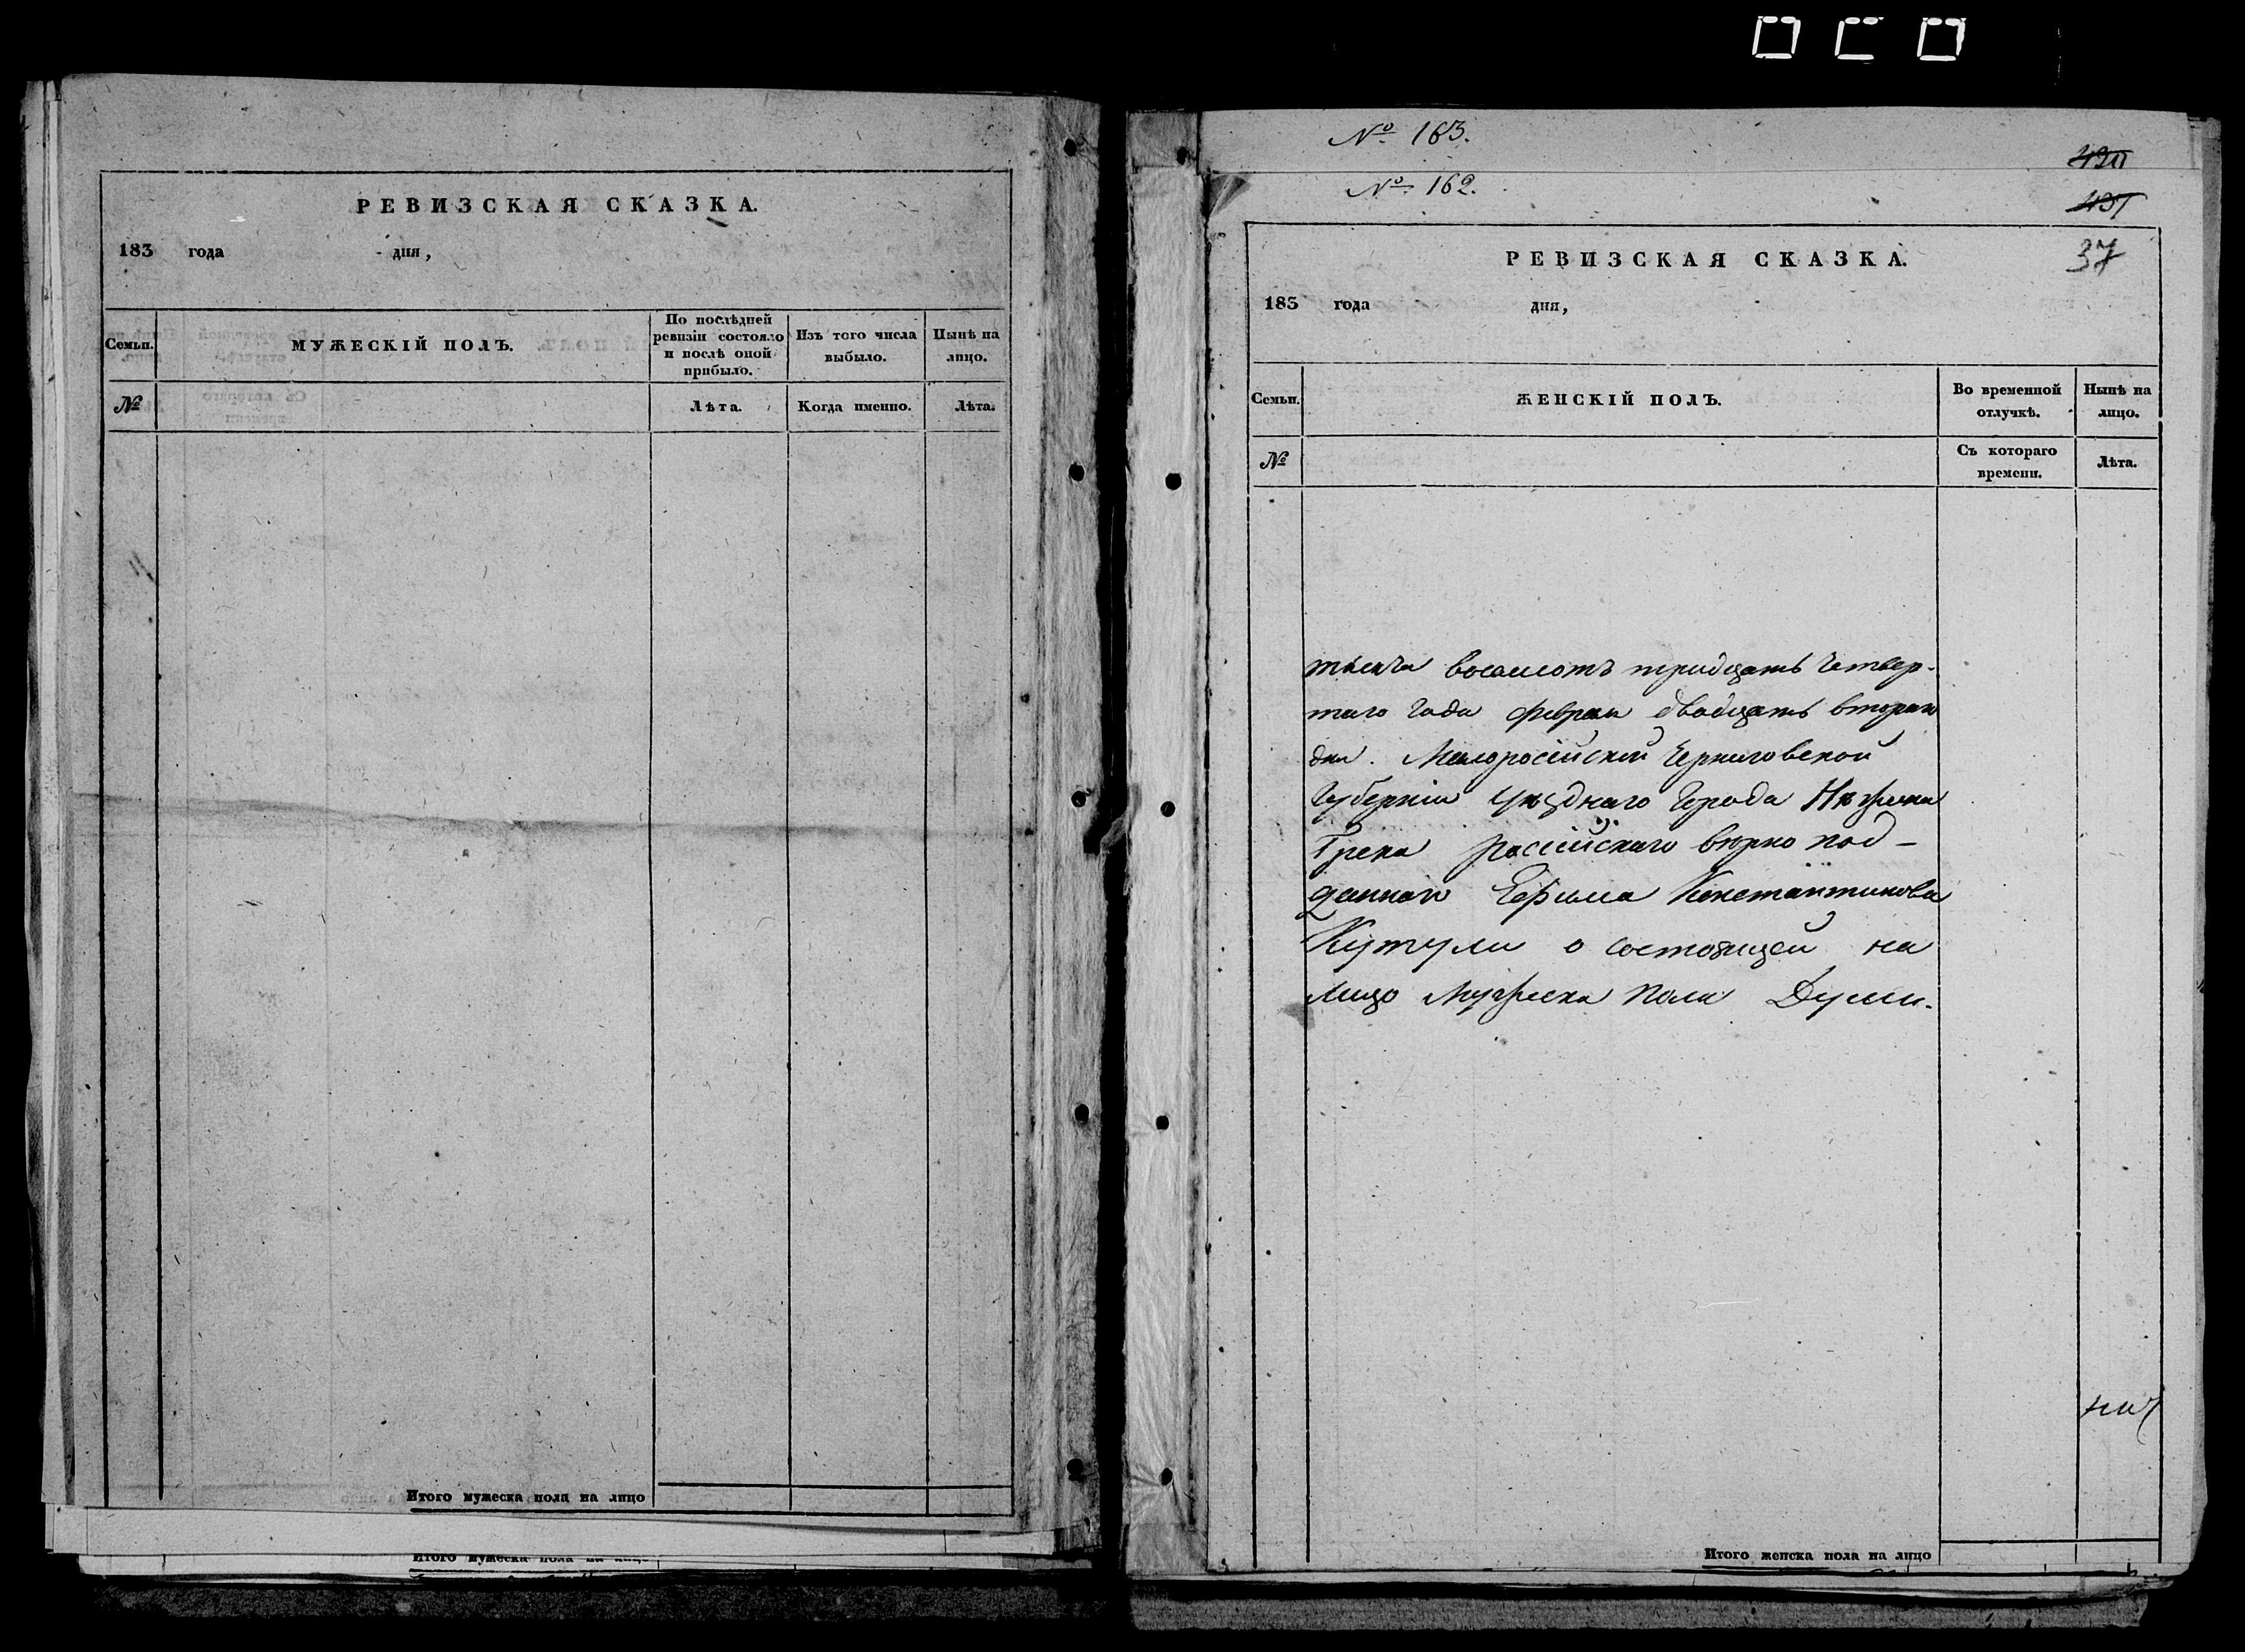 РЕВИЗСКАЯ СКАЗКА.
183 года дня,
Семьи.
МУЖЕСКІЙ ПОЛЪ.
По послѣдней
ревизіи состояло
и послѣ оной
прибыло.
Изъ того числа
выбыло.
Нынѣ на
лицо.
№
Лѣта.
Когда именно.
Лѣта.
Итого мужеска пола на лицо
Итого мужеска пола на лицо
№ 163.
№ 162.
37
РЕВИЗСКАЯ СКАЗКА.
183 года дня,
Семьи.
ЖЕНСКІЙ ПОЛЪ.
Во временной
отлучкѣ.
Нынѣ на
лицо.
№
Съ котораго
времени.
Лѣта.
тысяча восемсотъ тридцать четвер-
таго года февраля двадцать втораго
дня. Малоросійской Черниговской
Губерніи уѣзднаго города Нѣжина
Грека россійскаго вѣрно под-
даннаго Ефима Константинова
Кутули о состоящей на
лицо мужеска пола Души.
Итого женска пола на лицо